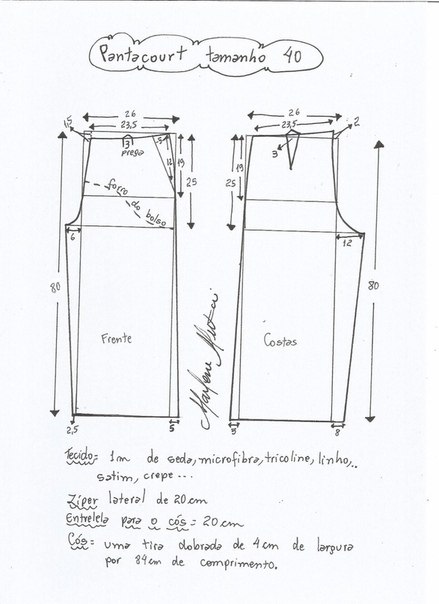 Pantacourt tamanho 40
26
23,5
1,5
3
prega
5
12
19
25
forro
do bolso
6
80
Frente
2,5
5
26
23,5
2
3
19
25
12
80
Costas
5
8
Marlene Mukai
Tecido = 1m de seda, microfibra, tricoline, linho,..
satim, crepe ...
Zíper lateral de 20cm
Entretela para o cós = 20 cm
Cós = uma tira dobrada de 4cm de largura
por 84cm de comprimento.